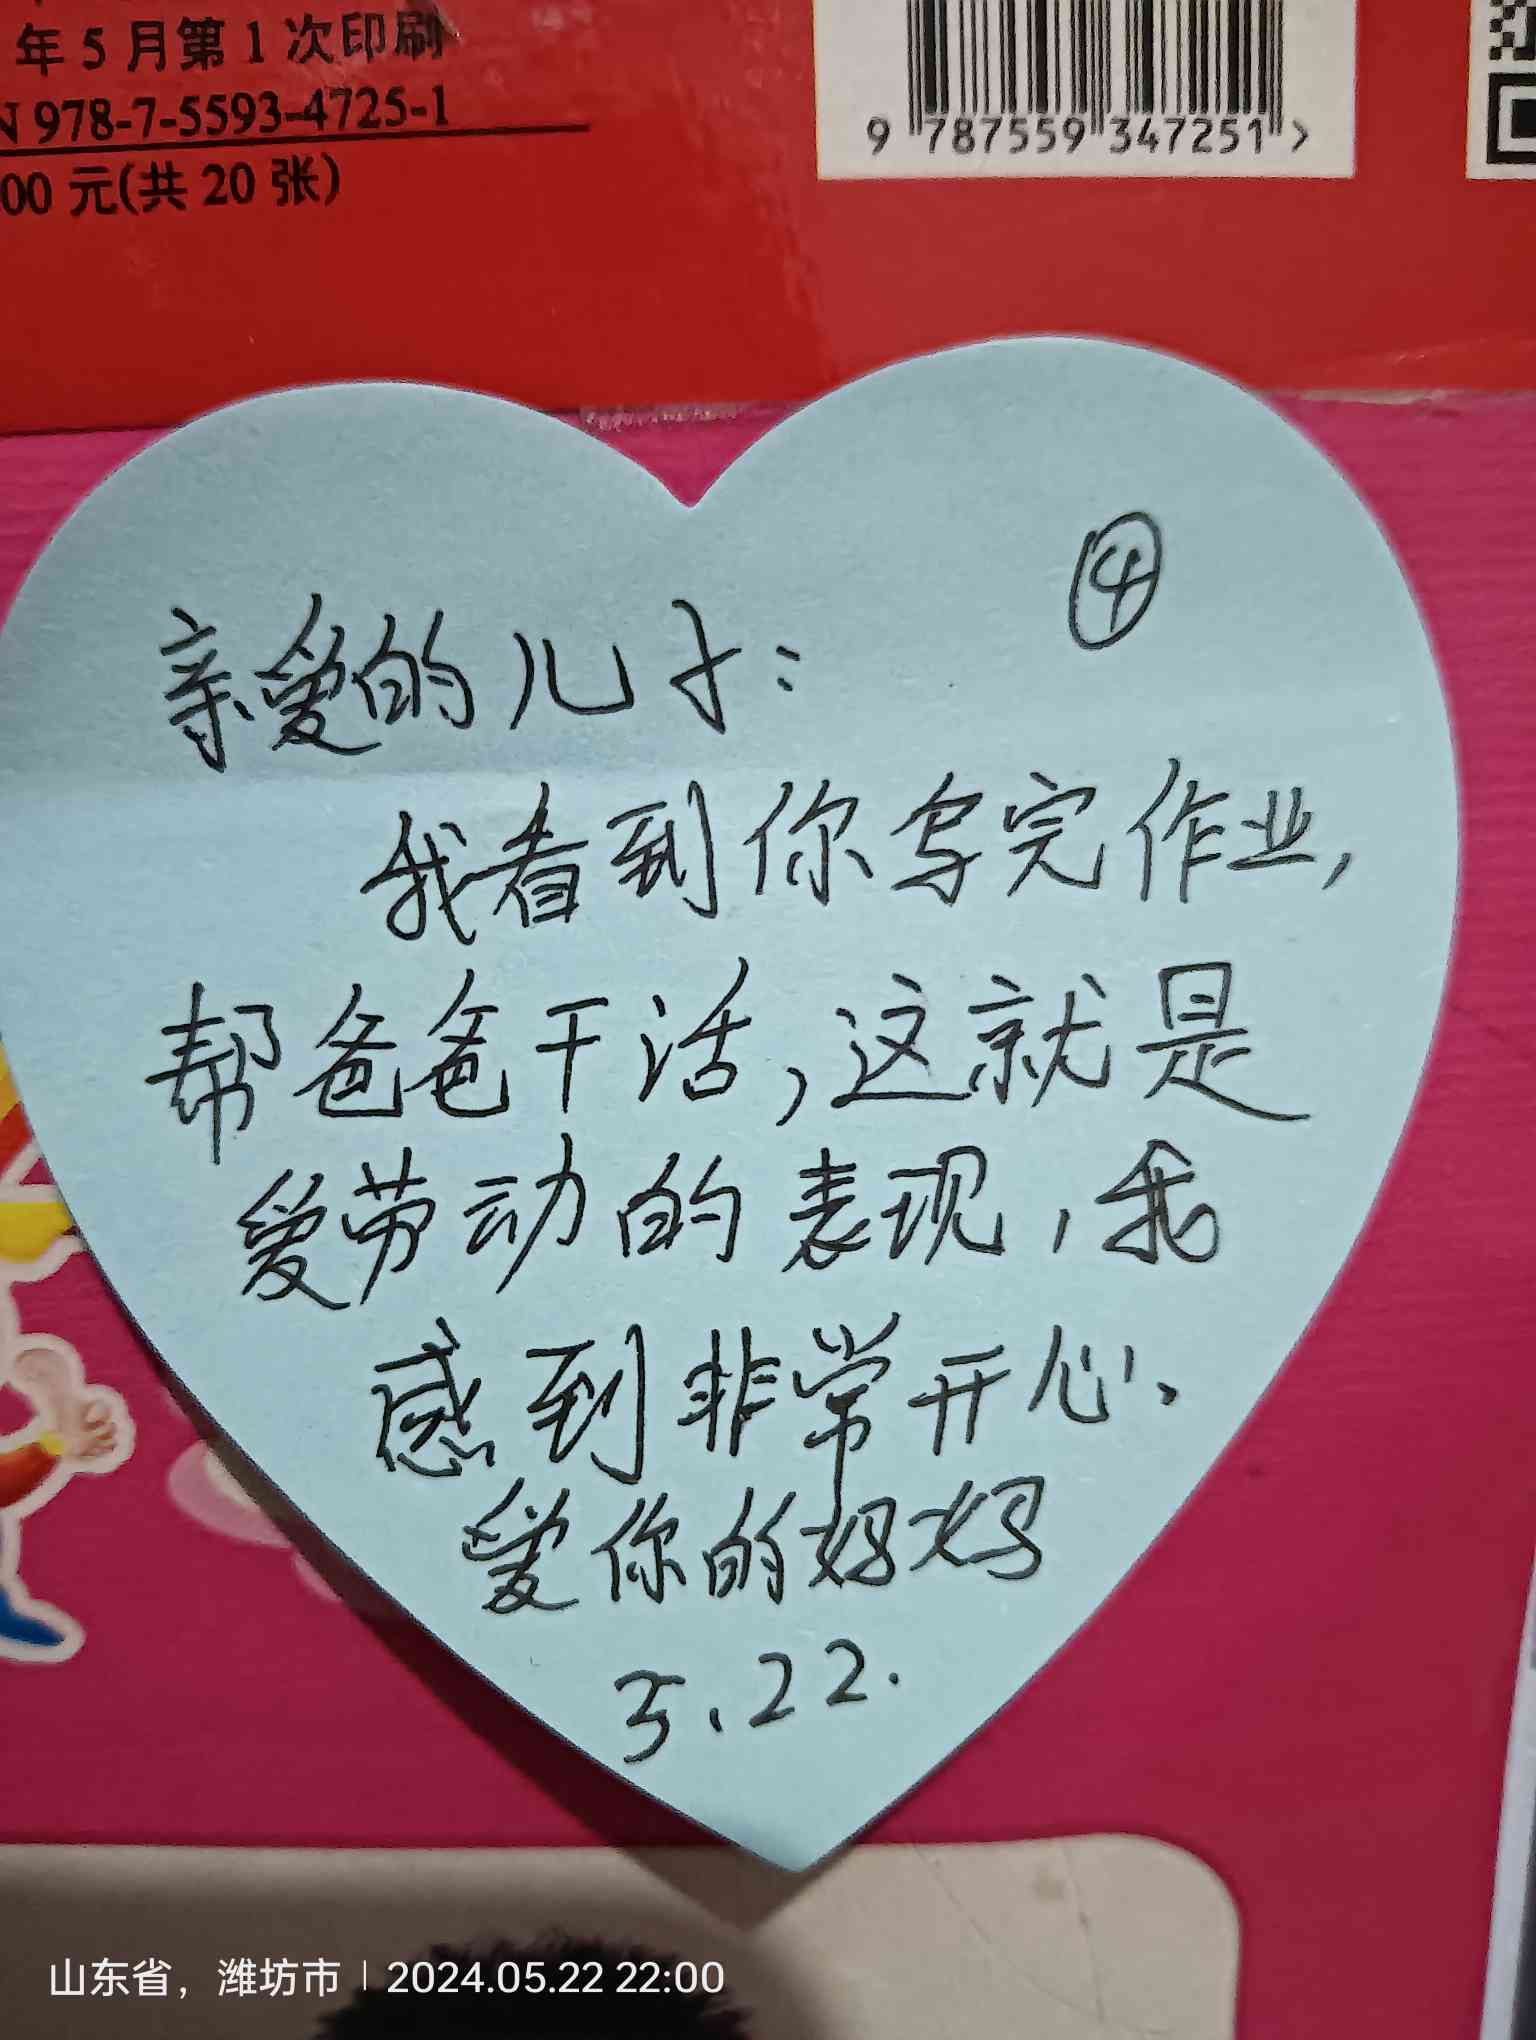 年5月第1次印刷
N 978-7-5593-4725-1
00 元(共 20 张)
9 787559 347251 >
④
亲爱的儿子:
我看到你写完作业,
帮爸爸干活,这就是
爱劳动的表现,我
感到非常开心、
爱你的妈妈
5.22.
山东省，潍坊市 | 2024.05.22 22:00